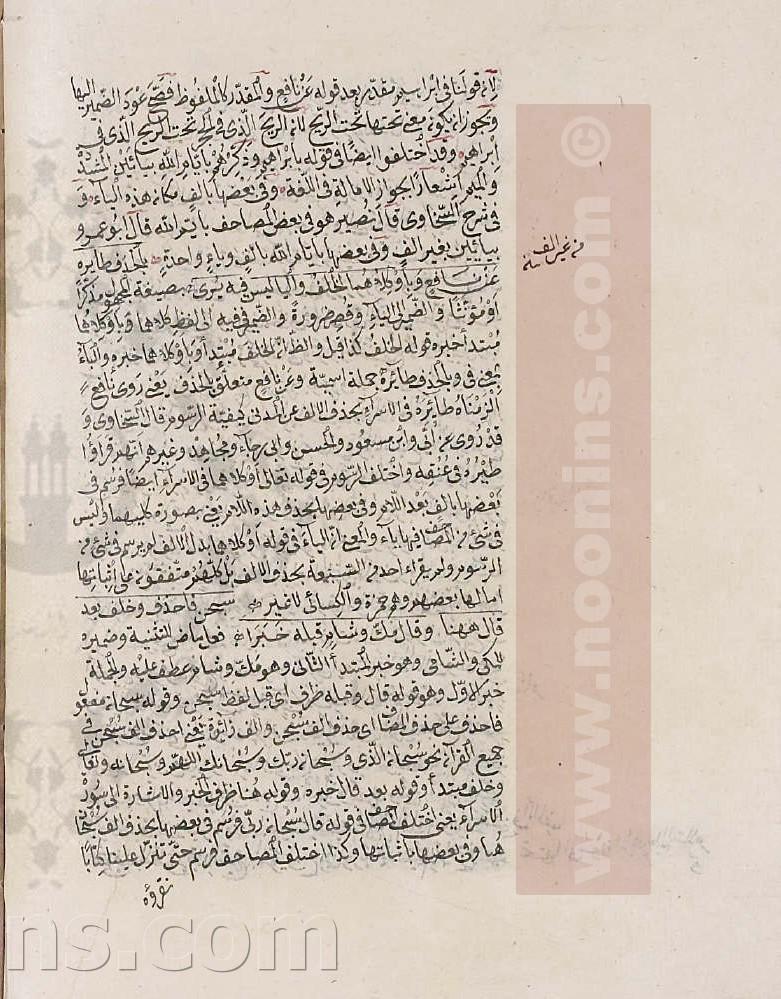 لان قولنا في ابراهيم مقدر بعد قوله عن نافع والمقدر كالملفوظ فصح عود الضمير اليها
وتجوز ان يكون معنى تحتها تحت الريح لان الريح الذي في الحج تحت الريح الذي في
ابراهيم وقد اختلفوا ايضا في قوله بابراهيم وذكرهم باييام الله بيائين
والميم اشعارا بجواز الامالة في اللغة وفي بعضها بالف مكان هذه الياء و
في شرح السخاوي قال نصير هو في بعض المصاحف باييم الله قال ابو عمرو
بيائين بغير الف وفي بعضها بايام الله بالف وياء واحدة بالحذف طائره
عن نافع وباو كلاهما الخلف واليا ليس فيه يرى بصيغة المجهول مذكرا
او مؤنثا والضمير الى الياء وقصر ضرورة والضمير في فيه الى لفظ كلاهما وباو كلاهما
مبتدأ خبره قوله الخلف كذا قيل والظ ان الخلف مبتدأ وباو كلاهما خبره والباء
بمعنى في وبالحذف طائره جملة اسمية وعن نافع متعلق بالحذف يعني روى نافع
الزمناه طائره في الاسراء بحذف الالف عن المدني كبقية الرسوم قال السخاوي و
قد روى عن ابي وابن مسعود والحسن وابي رجاء ومجاهد وغيرهم انهم قراؤا
طيره في عنقه واختلف الرسوم في قوله تعالى او كلاهما في الاسراء ايضا فرسم في
بعضها بالف بعد اللام وفي بعضها بحذف هذه اللام يعني بصورة كليهما وليس
في شيء من المصاحف فيها ياء والمعنى ان الياء في قوله او كلاهما بدل الالف لم يرسم في شيء من
الرسوم ولم يقراء احد من السبعة بحذف الالف بل كلهم متفقون على اثباتها
امالها بعضهم وهم حمزة والكسائي لا غير سبحن فاحذف وخلف بعد
قال ههنا وقال مك وشام قبله خبرا فعل ماض للتثنية وضميره
للمكي والشامي وهو خبر المبتدأ الثاني وهو مك وشام عطف عليه والجملة
خبر الاول وهو قوله قال وقبله ظرف اي قبل لفظ سبحن وقوله سبحان مفعول
فاحذف على حذف المضاف اي حذف الف سبحن والف زائرة يعني احذف الف سبحن في
جميع القرآن نحو سبحان الذي وسبحان ربك وسبحانك اللهم وسبحانه وتعالى
وخلف مبتدأ وقوله بعد قال خبره وقوله هنا ظرف الخبر والاشارة الى سورة
الاسراء يعني اختلف المصاحف في قوله قال سبحان ربي فرسم في بعضها بحذف الف سبحان
هنا وفي بعضها باثباتها وكذا اختلف المصاحف فرسم حتى تنزل علينا كتابا
نقرؤه
من غير الف
www.noonins.com ©
ns.com